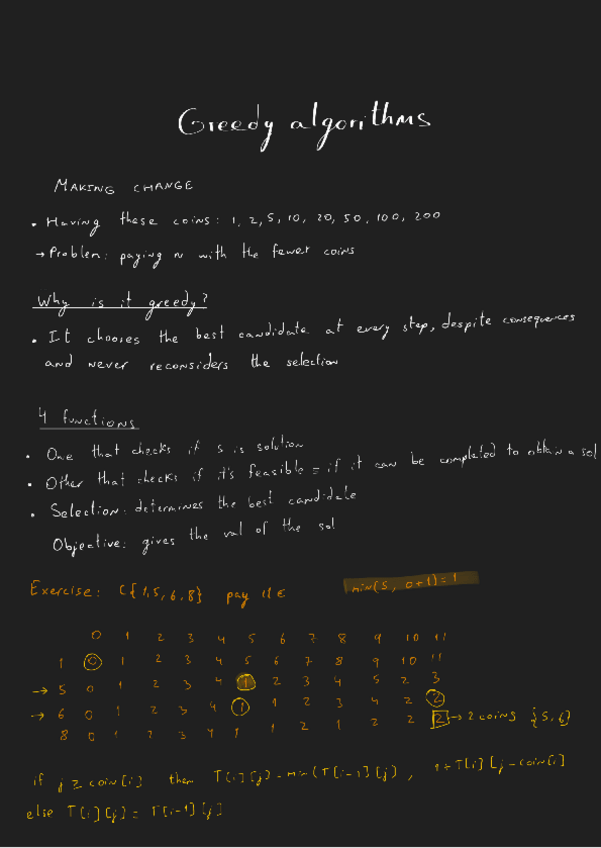 Greedy algorithms
MAKING CHANGE
• Having these coins: 1, 2, 5, 10, 20, 50, 100, 200
→ Problem: paying n with the fewer coins
Why is it greedy?
• It chooses the best candidate at every step, despite consequences
and never reconsiders the selection
4 functions
• One that checks if s is solution
• Other that checks if it's feasible = if it can be completed to obtain a sol
• Selection: determines the best candidate
Objective: gives the val of the sol
Exercise: C{1,5,6,8} pay 11€ min(5, 0+1)=1
0 1 2 3 4 5 6 7 8 9 10 11
1 0 1 2 3 4 5 6 7 8 9 10 11
→ 5 0 1 2 3 4 1 2 3 4 5 2 3
→ 6 0 1 2 3 4 1 1 2 3 4 2 2
8 0 1 2 3 4 1 1 2 1 2 2 2 → 2 coins {5,6}
if j ≥ coin[i] then T[i][j] = min(T[i-1][j], 1+T[i][j-coin[i]
else T[i][j] = T[i-1][j]